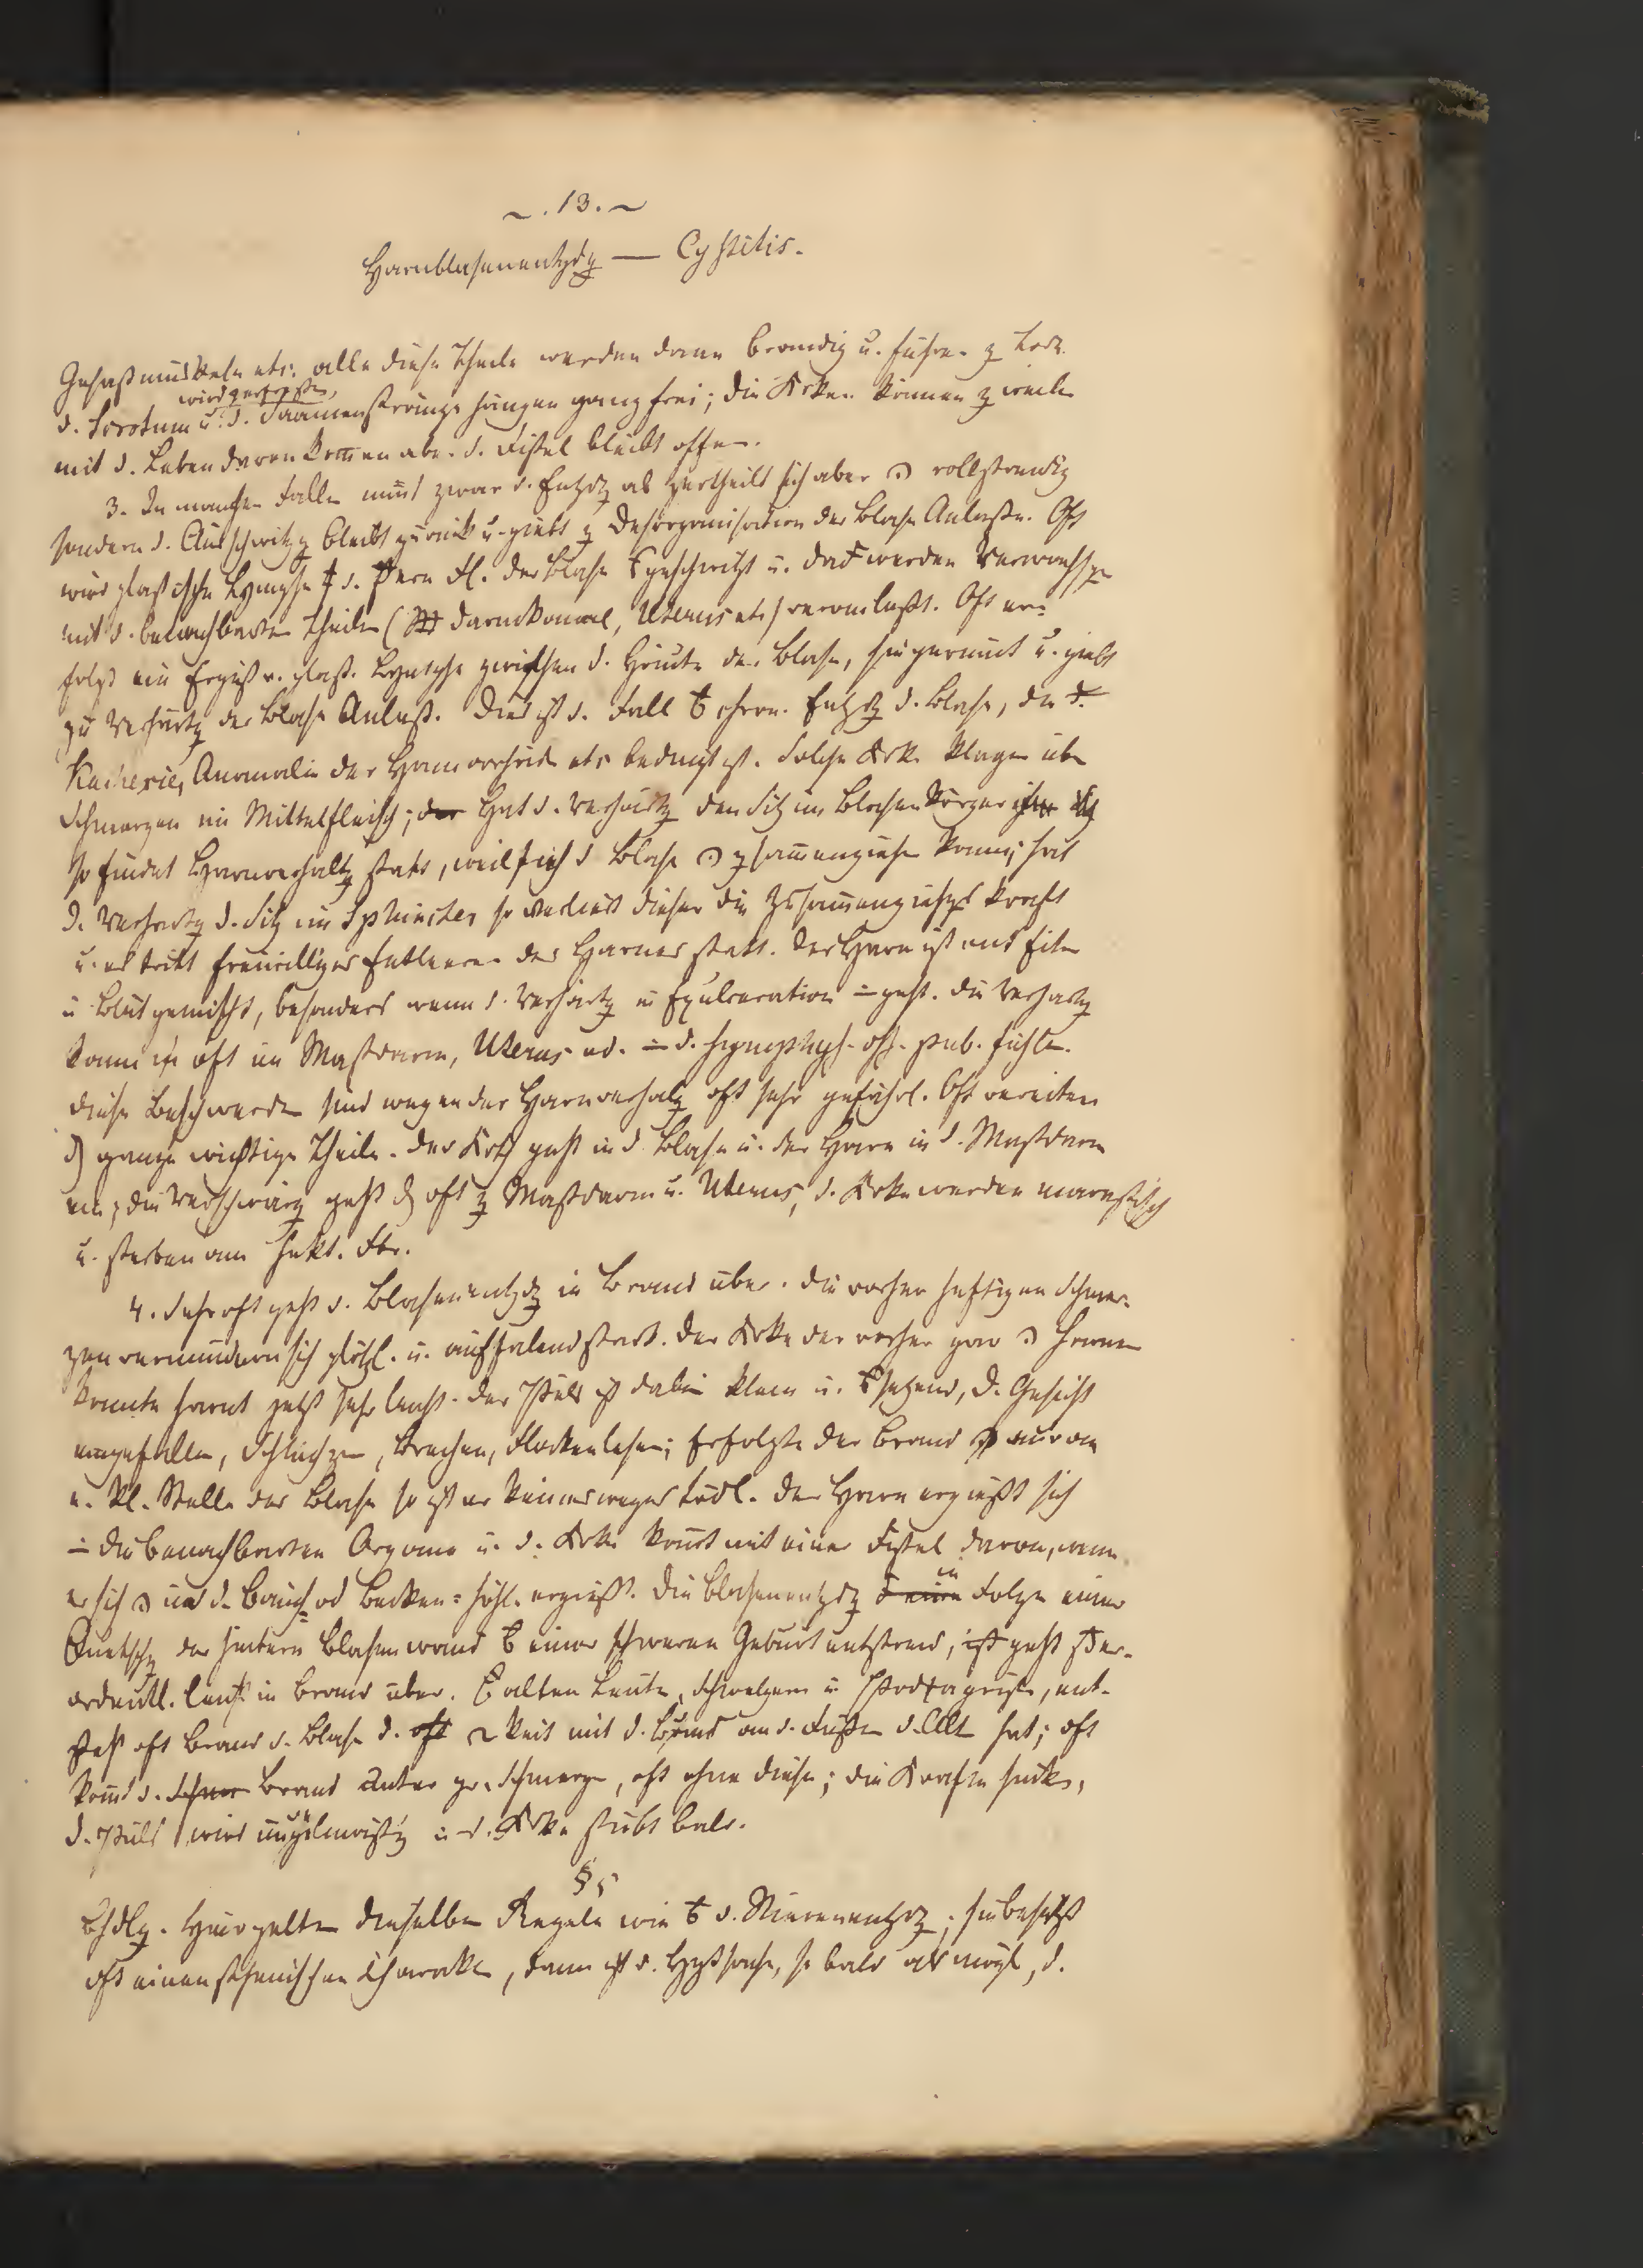 ~ . 13. ~
Harnblasenentzdg — Cystitis.
Gesäßmuskeln etc: alle diese Theile werden dann brandig u. führen z Tode.
wird zerfressen,
d. Scrotum u. d. Saamenstränge hängen ganz frei; die Krken können z weile
mit d. Leben davon kommen aber d. Fistel bleibt offen.
3. In manchen Fällen nimt zwar d. Entzdg ab zertheilt sich aber vollständig
sondern d. Ausschwitzg bleibt zurück u. giebt z Desorganisation der Blase Anlaße. Oft
wird plastische Lymphe d. der Blase geschwitzt u. werden Verwachsgen
mit d. benachbarten Theilen ( Darmkanal, Uterus etc) veranlaßt. Oft er=
folgt ein Erguß v. plast. Lymphe zwischen d. Häute der Blase, sie gerinnt u. giebt
zu Verhärtg der Blase Anlaß. Dies ist d. Fall chron. Entzdg d. Blase, die d.
Kachexie, Anomalie der Hämorrhoid. etc bedingt ist. Solche Krke klagen über
Schmerzen im Mittelfleisch; der Hat d. Verhärtg den Sitz im Blasenkörper
so findet Harnverhaltg statt, weil sich d Blase zsammenziehen kann; hat
d. Verhärtg d. Sitz im Sphincter so verliert dieser die Zusammenziehgs kraft
u. es tritt freiwilliges Entleeren des Harnes statt. Der Harn ist mit Eiter
u Blut gemischt, besonders wenn d. Verhärtg in Exulceration geht. Die Verhärtg
kann oft im Mastdarm, Uterus od. d. Symphys. oss. pub. fühlen.
Diese Beschwerden sind wegen der Harnverhaltg oft sehr gefährl. Oft vereitern
ganze wichtige Theile. Der Koth geht in d Blase u. der Harn in d. Mastdarm
ein; die Verschwärg geht oft z Mastdarm u. Uterus, d. Krken werden marastisch
u. sterben am hekt. Fbr.
4. Sehr oft geht d. Blasenentzdg in Brand über. Die vorher heftigen Schmer-
zen vermindern sich plötzl. u. auffalend stark. Der Krke der vorher gar harnen
konnte harnt jetzt sehr leicht. Der Puls ist dabei klein u. setzend, d. Gesicht
eingefallen, Schluchzen, Brechen, Flockenlesen; Erfolgte der Brand nur an
e. kl. Stelle der Blase so ist er keineswegs tödl. Der Harn ergießt sich
die benachbarten Organe u. d. Krke komt mit einer Fistel davon, wenn
er sich in d. Bauch= od Becken=höhl. ergießt. Die Blasenentzdg in Folge einer
Quetschg der hintern Blasenwand einer schweren Geburt entstand, geht
ordentl. leicht in Brand über. alten Leute, Schwelgern u Podagristen, ent-
steht oft Brand d. Blase d. oft keit mit d. Brand an d. Füßen d. Alt hat; oft
komt d. Brand unter gr. Schmerzen, oft ohne diese; die Kräfte sinken,
d. Puls wird ungelmäßig u d. Krke stirbt bald.
§ 5
Bhdlg. Hier gelten dieselben Regeln wie d. Nierenentzdg; sie besitzt
oft einen sthenischen Charakter, dann ist d. Hptsache, so bald als mögl, d.